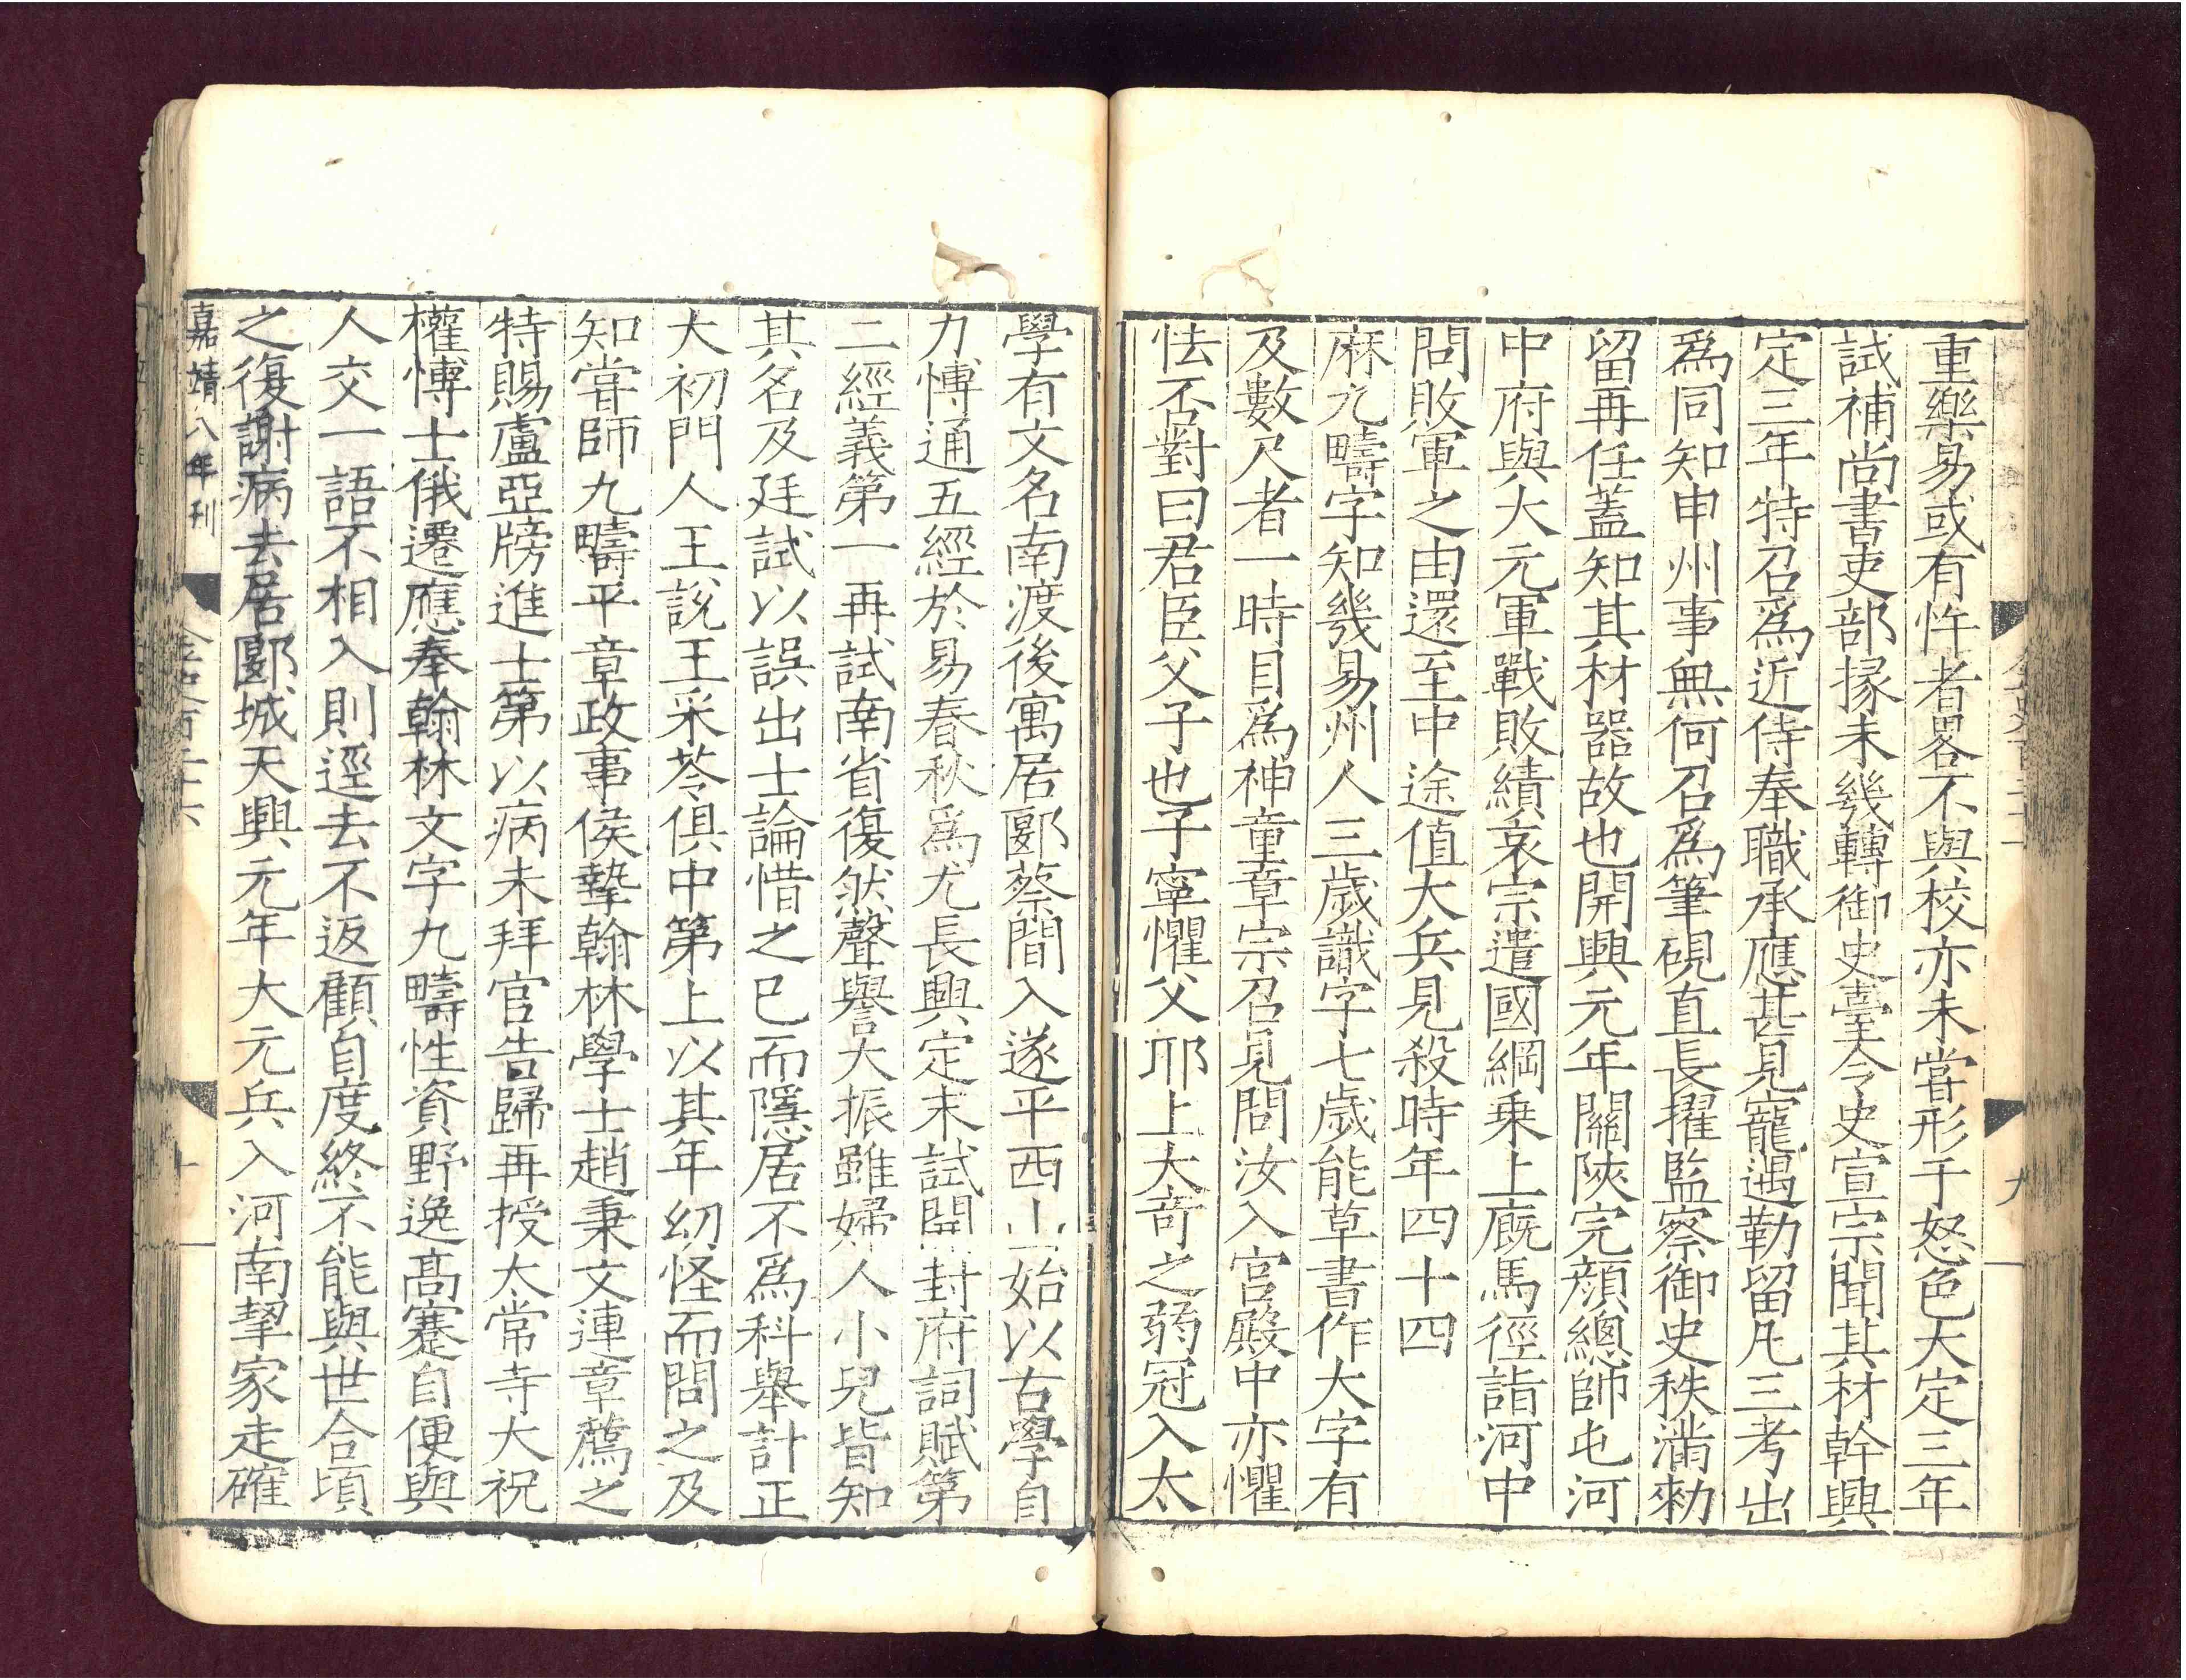 重樂易或有忤者畧不與校亦未嘗形于怒色大定三年
試補尚書吏部掾未幾轉御史臺令史宣宗聞其材幹興
定三年特召爲近侍奉職承應甚見寵遇勒留凡三考出
爲同知申州事無何召爲筆硯直長擢監察御史秩滿勑
留再任蓋知其材器故也開興元年關陜完顔總帥屯河
中府與大元軍戰敗績哀宗遣國綱乗上廐馬徑詣河中
問敗軍之由還至中途值大兵見殺時年四十四
麻九疇字知幾易州人三歲識字七歲能草書作大字有
及數尺者一時目爲神童章宗召見問汝入宫殿中亦懼
怯否對曰君臣父子也子寧懼父邪上大竒之弱冠入太
九
學有文名南渡後寓居郾蔡間入遂平西山始以古學自
力愽通五經於易春秋爲尤長興定末試開封府詞賦第
二經義第一再試南省復然聲譽大振雖婦人小兒皆知
其名及廷試以誤出士論惜之已而隱居不爲科舉計正
大初門人王說王采苓俱中第上以其年㓜怪而問之及
知嘗師九疇平章政事侯摯翰林學士趙秉文連章薦之
特賜盧亞牓進士第以病未拜官告歸再授太常寺太祝
權愽士俄遷應奉翰林文字九疇性資野逸髙蹇自便與
人交一語不相入則逕去不返顧自度終不能與世合頃
之復謝病去居郾城天興元年大元兵入河南挈家走確
嘉靖八年刊
金史百二十六
十